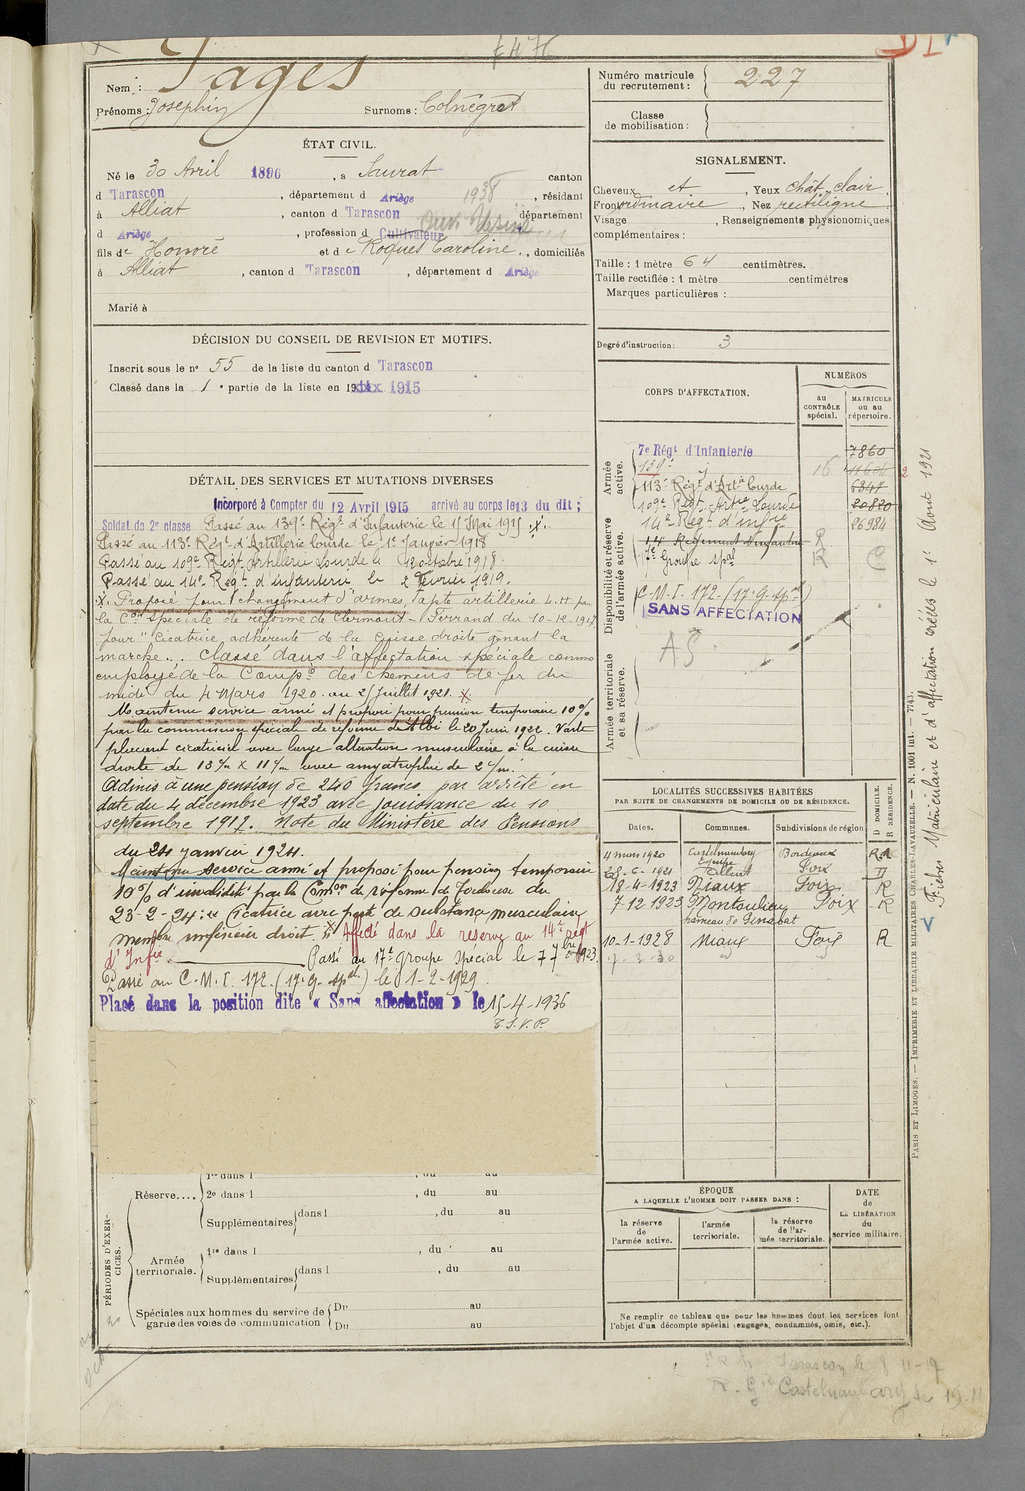 Nom : Pagès
Prénoms : Josephin Surnoms : Colnégret
ÉTAT CIVIL.
Né le 30 Avril 1896, à Saurat canton
d Tarascon, département d Ariège 1938, résidant
à Alliat, canton d Tarascon département
d Ariège, profession d Cultivateur
fils de Honoré et de Roques Caroline, domiciliés
à Alliat, canton d Tarascon, département d Ariège
Marié à
DÉCISION DU CONSEIL DE REVISION ET MOTIFS.
Inscrit sous le n° 55 de la liste du canton d Tarascon
Classé dans la 1e partie de la liste en 1915
DÉTAIL DES SERVICES ET MUTATIONS DIVERSES
Incorporé à Compter du 12 Avril 1915 arrivé au corps le 13 du dit ;
Soldat de 2e classe Passé au 139e Régt d'Infanterie le 15 Mai 1915 .x.
Passé au 113e Régt d'Artillerie Lourde le 1er Janvier 1918
Passé au 109e Régt Artillerie Lourde le octobre 1918.
Passé au 14e Régt d'infanterie le 2 février 1919.
x. Proposé pour changement d'armes, apte artillerie par
la Con spéciale de réforme de Clermont-Ferrand du 10-12-1917
pour "Cicatrice adhérente de la cuisse droite gênant la
marche... Classé dans l'affectation spéciale comme
employé de la Compie des chemins de fer du
midi du 4 Mars 1920. au 25 Juillet 1921. x
Maintenu service armé et proposé pour pension temporaire 10%
par la commission spéciale de réforme de Albi le 20 Juin 1922. Vaste
placard cicatriciel avec large altération musculaire à la cuisse
droite de 13 c/m X 11 c/m avec amyotrophie de 2 c/m.
Admis à une pension de 240 francs par arrêté en
date du 4 décembre 1923 avec jouissance du 10
septembre 1919. Note du Ministère des Pensions
du 24 janvier 1924.
Maintenu service armé et proposé pour pension temporaire
10% d'invalidité par la Comon de réforme de Toulouse du
23-2-24 : Cicatrice avec perte de substance musculaire
membre inférieur droit. Affecté dans la réserve au 14e régt
d'Infie Passé au 17e Groupe Spécial le 7 7bre 1923
Passé au C.M.I. 172. (17e G. spal) le 1-2-1929
Placé dans la position dite « Sans affectation » le 15-4-1936
T.S.V.P.
1re dans l , du au
Réserve.... 2e dans l , du au
Supplémentaires dans l , du au
PÉRIODES D'EXERCICES.
Armée territoriale. 1re dans l , du au
Supplémentaires dans l , du au
Spéciales aux hommes du service de garde des voies de communication Du au
Du au
Numéro matricule du recrutement : 227
Classe de mobilisation :
SIGNALEMENT.
Cheveux et, Yeux chât clair
Front ordinaire, Nez rectiligne
Visage , Renseignements physionomiques
complémentaires :
Taille : 1 mètre 64 centimètres.
Taille rectifiée : 1 mètre centimètres
Marques particulières :
Degré d'instruction : 3
CORPS D'AFFECTATION.
NUMÉROS
au CONTRÔLE spécial.
MATRICULE ou au répertoire.
Armée active.
7e Régt d'Infanterie 7860
139e 16
113e Régt d'Artie Lourde 6347
109e Régt Artie Lourde 20820
14e Régt d'infie 26984
Disponibilité et réserve de l'armée active.
14 Régiment d'infanterie R
17e Groupe spal R C
C.M.I. 172. (17e G. spal)
SANS AFFECTATION
AS
Armée territoriale et sa réserve.
LOCALITÉS SUCCESSIVES HABITÉES
PAR SUITE DE CHANGEMENTS DE DOMICILE OU DE RÉSIDENCE.
Dates. Communes. Subdivisions de région D DOMICILE. R RÉSIDENCE.
4 mars 1920 Castelnaudary Equipe Bordeaux R
28-6-1921 Alliat Foix D
18-4-1923 Niaux Foix R
7-12-1923 Montoulieu Foix R
hameau de Ginabat
10-1-1928 Niaux Foix R
7-3-30
ÉPOQUE
A LAQUELLE L'HOMME DOIT PASSER DANS :
la réserve de l'armée active.
l'armée territoriale.
la réserve de l'armée territoriale.
DATE de LA LIBÉRATION du service militaire.
Ne remplir ce tableau que pour les hommes dont les services font
l'objet d'un décompte spécial (engagés, condamnés, omis, etc.).
PARIS ET LIMOGES. — IMPRIMERIE ET LIBRAIRIE MILITAIRES CHARLES-LAVAUZELLE. — N. 1001 int. — 7743.
Fiches Matriculaire et d'affectation créées le 1er Août 1921
Tarascon le 8-11-19
Castelnaudary le 19-11